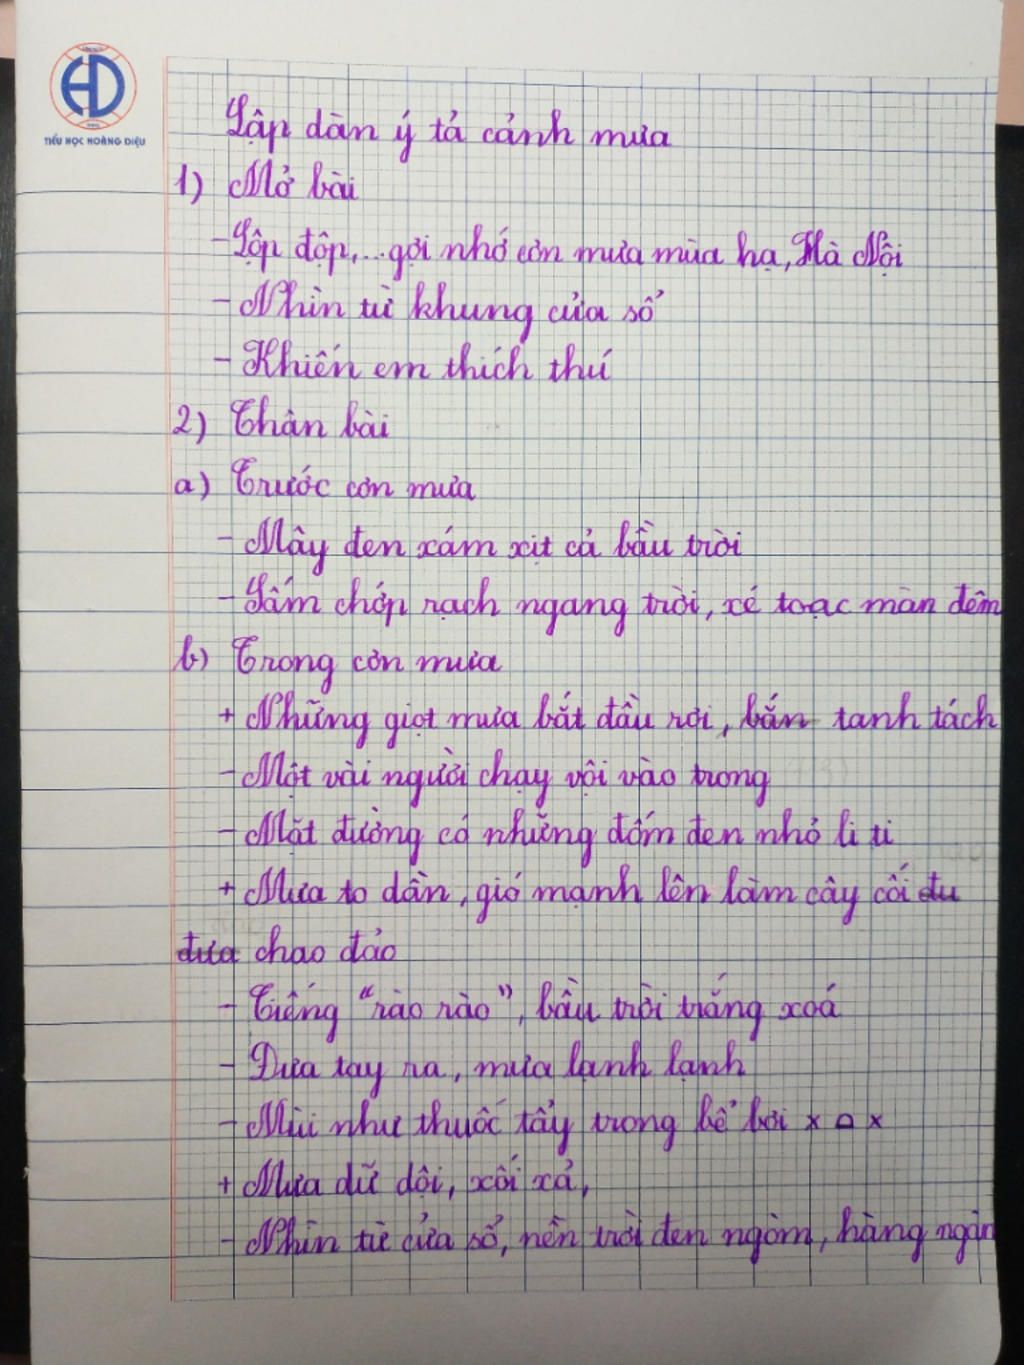 HD
TIỂU HỌC HOÀNG DIỆU
Lập dàn ý tả cảnh mưa
1) Mở bài
- Lộp độp,...gợi nhớ cơn mưa mùa hạ, Hà Nội
- Nhìn từ khung cửa sổ
- Khiến em thích thú
2) Thân bài
a) Trước cơn mưa
- Mây đen xám xịt cả bầu trời
- Sấm chớp rạch ngang trời, xé toạc màn đêm
b) Trong cơn mưa
+ Những giọt mưa bắt đầu rơi, bắn tanh tách
- Một vài người chạy vội vào trong
- Mặt đường có những đốm đen nhỏ li ti
+ Mưa to dần, gió mạnh lên làm cây cối đu
đưa chao đảo
- Tiếng "rào rào", bầu trời trắng xoá
- Đưa tay ra, mưa lạnh lạnh
- Mùi như thuốc tẩy trong bể bơi x △ x
+ Mưa dữ dội, xối xả,
- Nhìn từ cửa sổ, nền trời đen ngòm, hàng ngàn